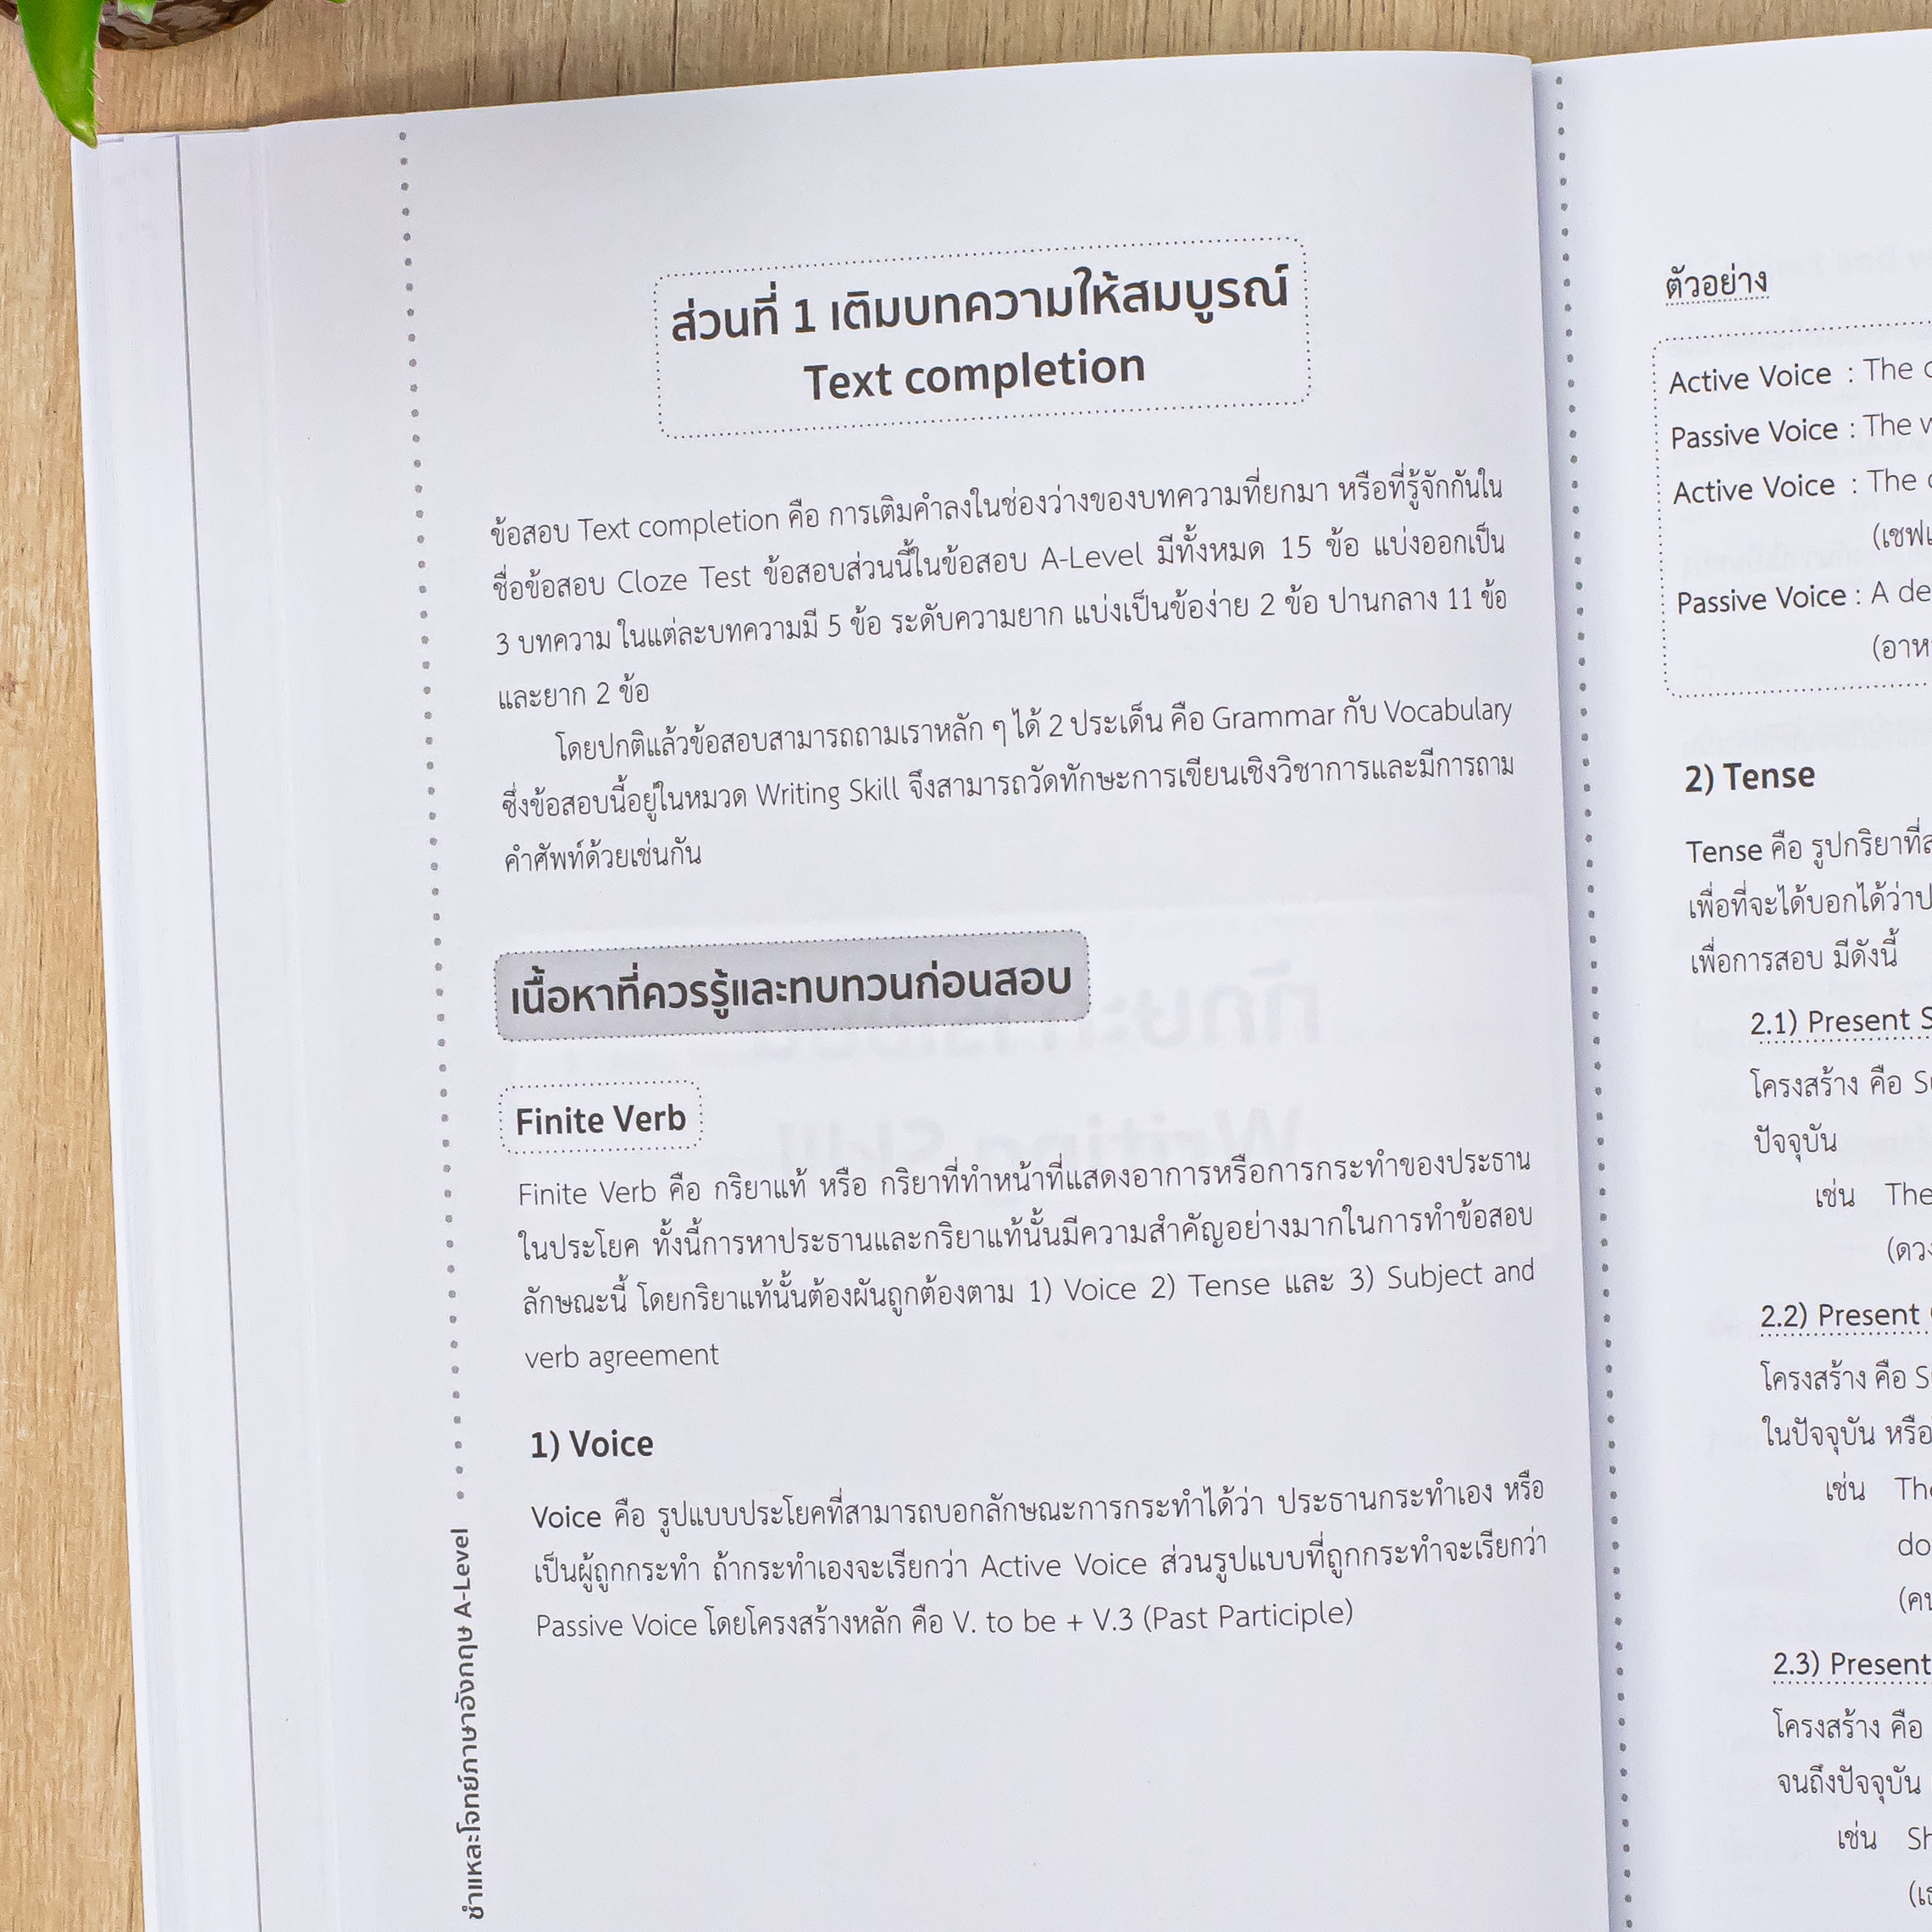 ส่วนที่ 1 เติมบทความให้สมบูรณ์
Text completion
ข้อสอบ Text completion คือ การเติมคำลงในช่องว่างของบทความที่ยกมา หรือที่รู้จักกันใน
ชื่อข้อสอบ Cloze Test ข้อสอบส่วนนี้ในข้อสอบ A-Level มีทั้งหมด 15 ข้อ แบ่งออกเป็น
3 บทความ ในแต่ละบทความมี 5 ข้อ ระดับความยาก แบ่งเป็นข้อง่าย 2 ข้อ ปานกลาง 11 ข้อ
และยาก 2 ข้อ
โดยปกติแล้วข้อสอบสามารถถามเราหลัก ๆ ได้ 2 ประเด็น คือ Grammar กับ Vocabulary
ซึ่งข้อสอบนี้อยู่ในหมวด Writing Skill จึงสามารถวัดทักษะการเขียนเชิงวิชาการและมีการถาม
คำศัพท์ด้วยเช่นกัน
เนื้อหาที่ควรรู้และทบทวนก่อนสอบ
Finite Verb
Finite Verb คือ กริยาแท้ หรือ กริยาที่ทำหน้าที่แสดงอาการหรือการกระทำของประธาน
ในประโยค ทั้งนี้การหาประธานและกริยาแท้นั้นมีความสำคัญอย่างมากในการทำข้อสอบ
ลักษณะนี้ โดยกริยาแท้นั้นต้องผันถูกต้องตาม 1) Voice 2) Tense และ 3) Subject and
verb agreement
1) Voice
Voice คือ รูปแบบประโยคที่สามารถบอกลักษณะการกระทำได้ว่า ประธานกระทำเอง หรือ
เป็นผู้ถูกกระทำ ถ้ากระทำเองจะเรียกว่า Active Voice ส่วนรูปแบบที่ถูกกระทำจะเรียกว่า
Passive Voice โดยโครงสร้างหลัก คือ V. to be + V.3 (Past Participle)
ชำแหละโจทย์ภาษาอังกฤษ A-Level
ตัวอย่าง
Active Voice : The
Passive Voice : The
Active Voice : The
(เชฟ
Passive Voice : A
(อาห
2) Tense
Tense คือ รูปกริยาที่
เพื่อที่จะได้บอกได้ว่า
เพื่อการสอบ มีดังนี้
2.1) Present
โครงสร้าง คือ
ปัจจุบัน
เช่น The
(ดวง
2.2) Present
โครงสร้าง คือ
ในปัจจุบัน หรือ
เช่น
do
(คน
2.3) Present
โครงสร้าง คือ
จนถึงปัจจุบัน
เช่น